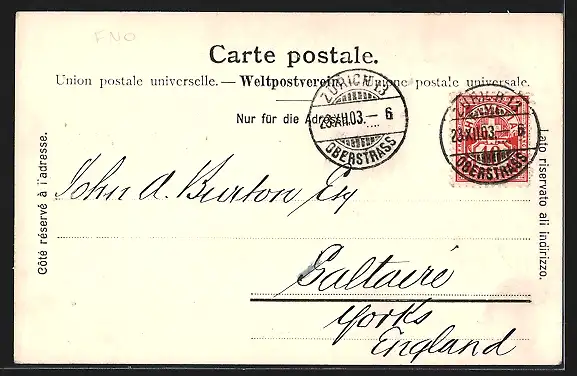 FNO
Carte postale.
Union postale universelle. — Weltpostverein. — Unione postale universale.
Nur für die Adresse.
ZÜRICH 13
23.XII.03. – 6
OBERSTRASS
ZÜRICH 13
23.XII.03. – 6
OBERSTRASS
Côté réservé à l'adresse.
Lato riservato all indirizzo.
John A. Burton Esq
Saltaire
Yorks
England